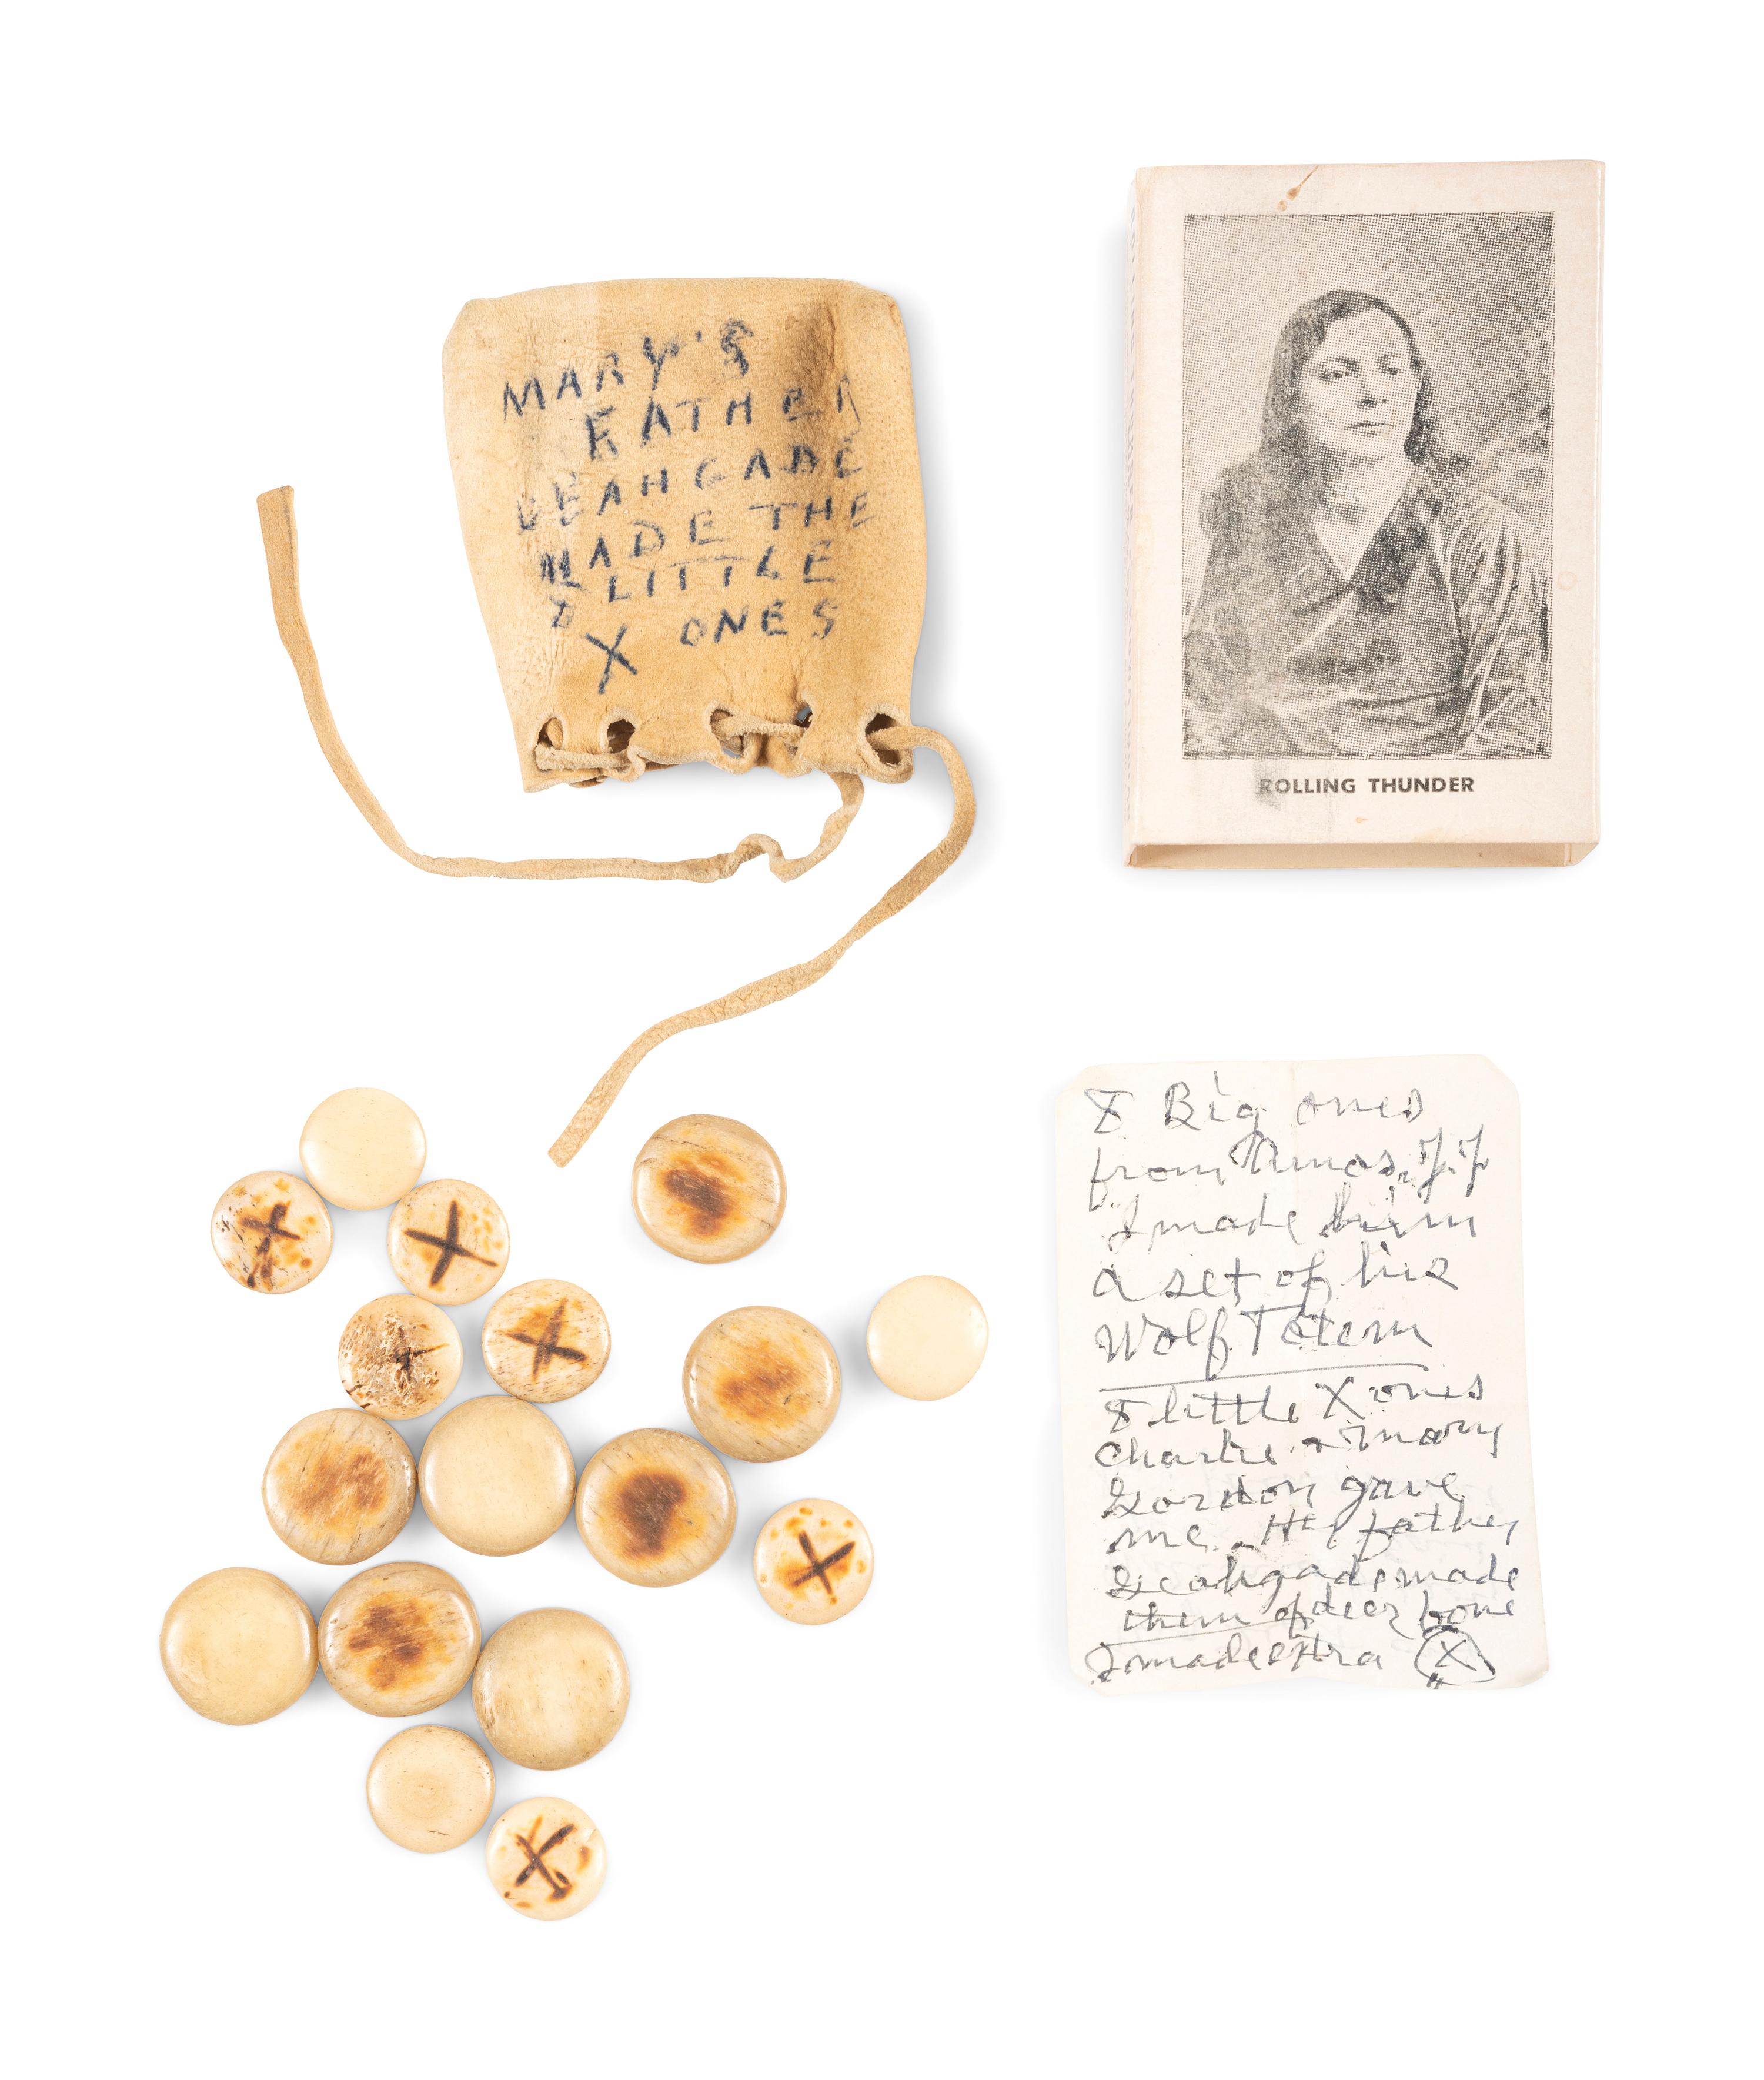 MARY'S
FATHER
MADE THE
8 LITTLE
X ONES
ROLLING THUNDER
8 Big ones
from
I made him
a set of his
Wolf Totem
8 little X ones
Charlie & Mary
Gordon gave
me. father
made
them of deer bone
I made extra X